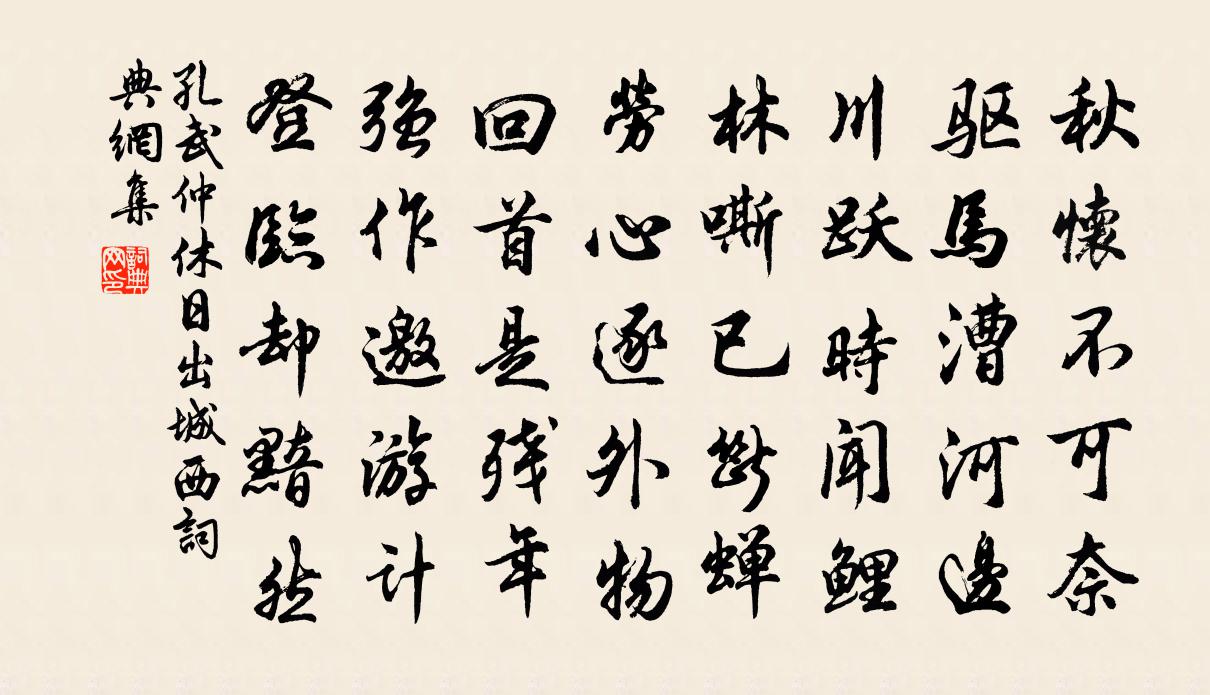 秋懷不可奈
驱馬漕河邊
川跃時闻鲤
林嘶已斷蝉
勞心逐外物
回首是残年
强作邀游计
登臨却黯然
孔武仲休日出城西詞
典網集
詞典
网印